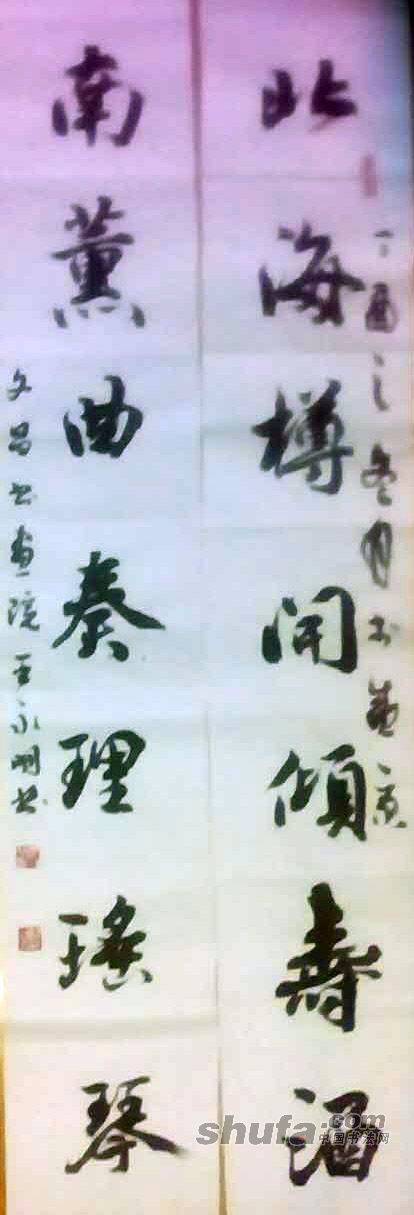 丁酉之冬月书燕京
北海樽开倾寿酒
南薰曲奏理瑶琴
文昌书画院王永明书
shufa.com
中国书法网